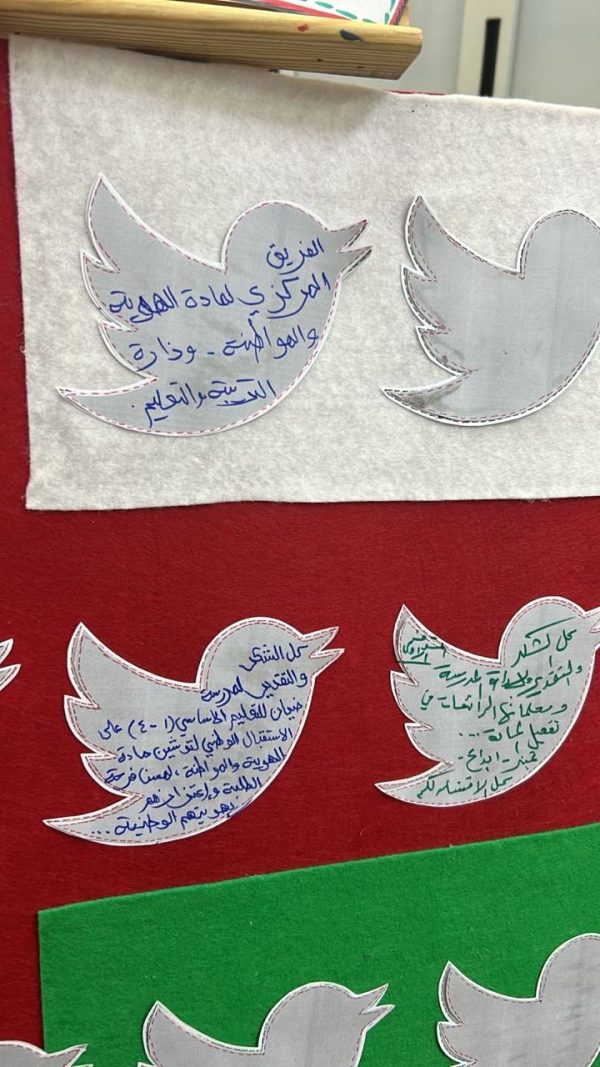 الفريق
المركزي لمادة الهوية
والمواطنة - وزارة
التربية والتعليم
كل الشكر
والتقدير لمدرسة
للتعليم الأساسي (١-٤) على
الاستقبال الوطني لتدشين مادة
الهوية والمواطنة، لمسنا فرحة
الطلبة واعتزازهم
بهويتهم الوطنية...
كل الشكر
والتقدير لمدرسة
ومعلماتها الرائعات في
تفعيل المادة...
كل الامتنان لكم